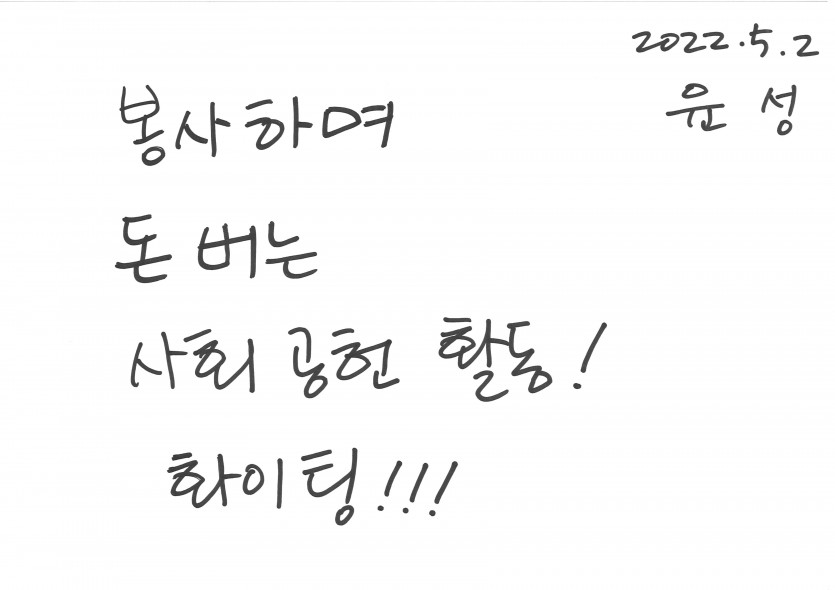 2022.5.2
윤성
봉사하며
돈 버는
사회 공헌 활동!
화이팅!!!